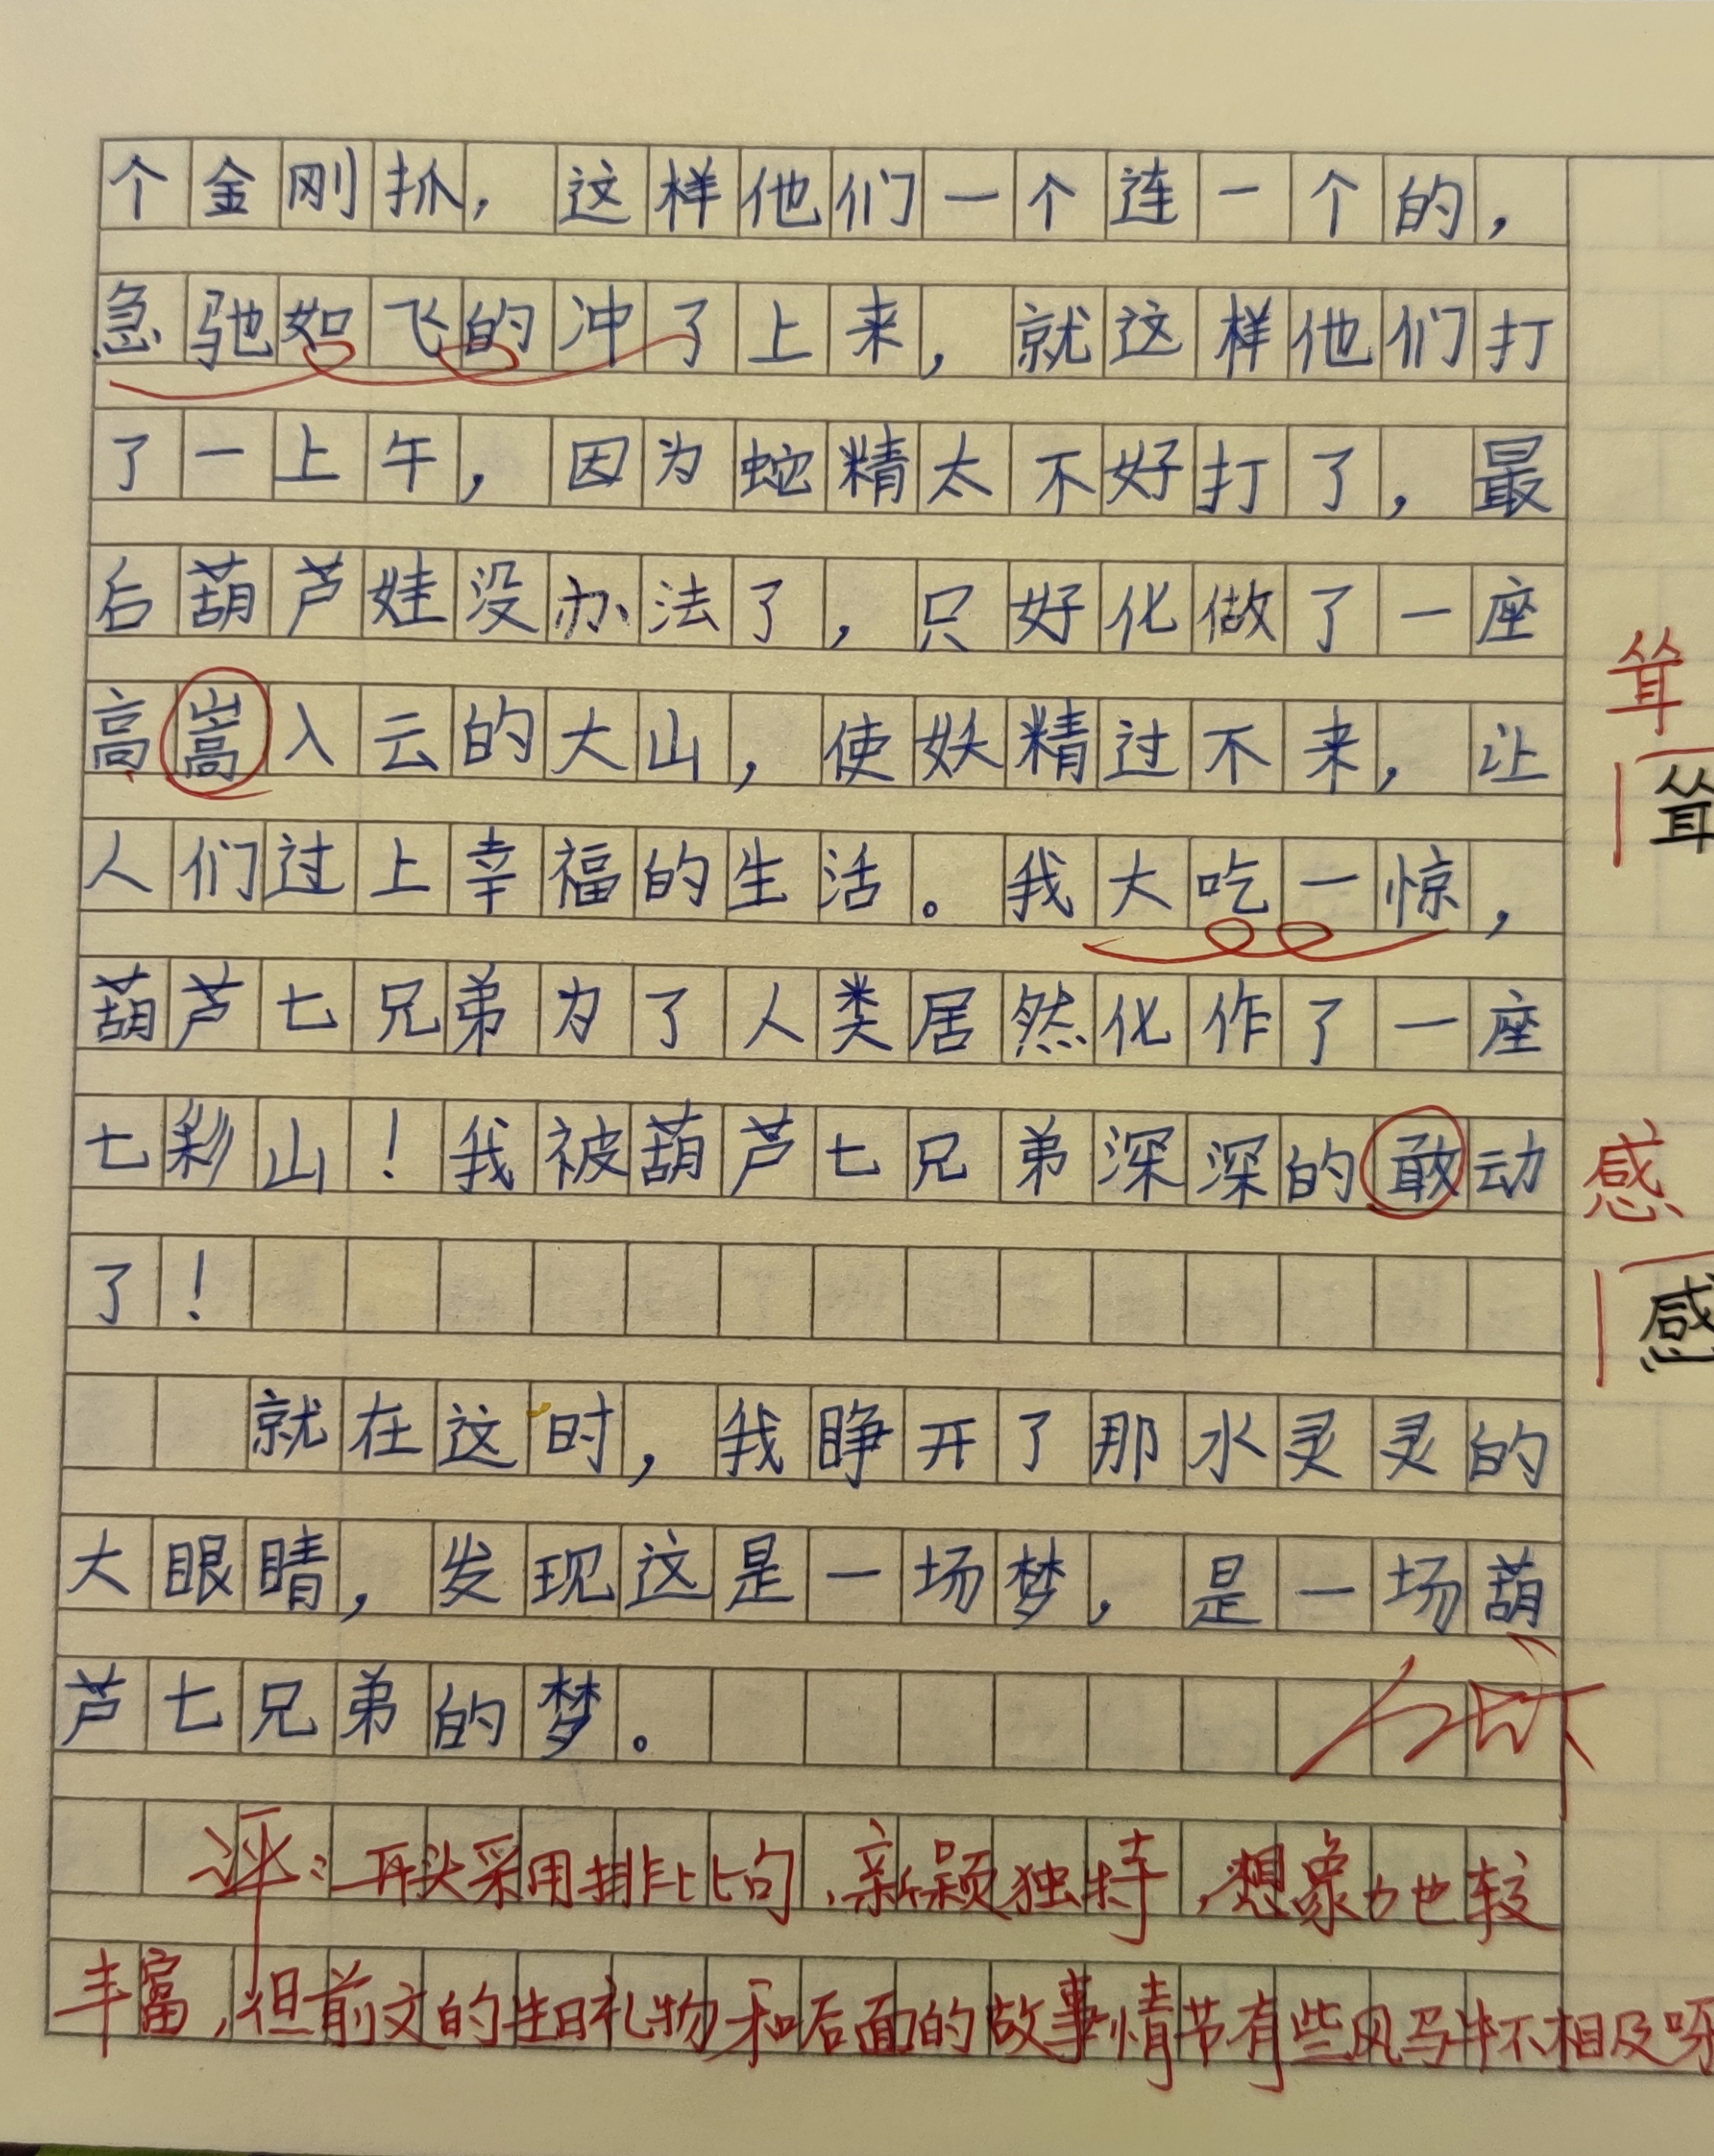 个金刚抓，这样他们一个连一个的，
急驰如飞的冲了上来，就这样他们打
了一上午，因为蛇精太不好打了，最
后葫芦娃没办法了，只好化做了一座
高嵩入云的大山，使妖精过不来，让
耸
耸
人们过上幸福的生活。我大吃一惊，
葫芦七兄弟为了人类居然化作了一座
七彩山！我被葫芦七兄弟深深的敢动
感
了！
感
就在这时，我睁开了那水灵灵的
大眼睛，发现这是一场梦，是一场葫
芦七兄弟的梦。
评：开头采用排比句，新颖独特，想象力也较
丰富，但前文的生日礼物和后面的故事情节有些风马牛不相及呀